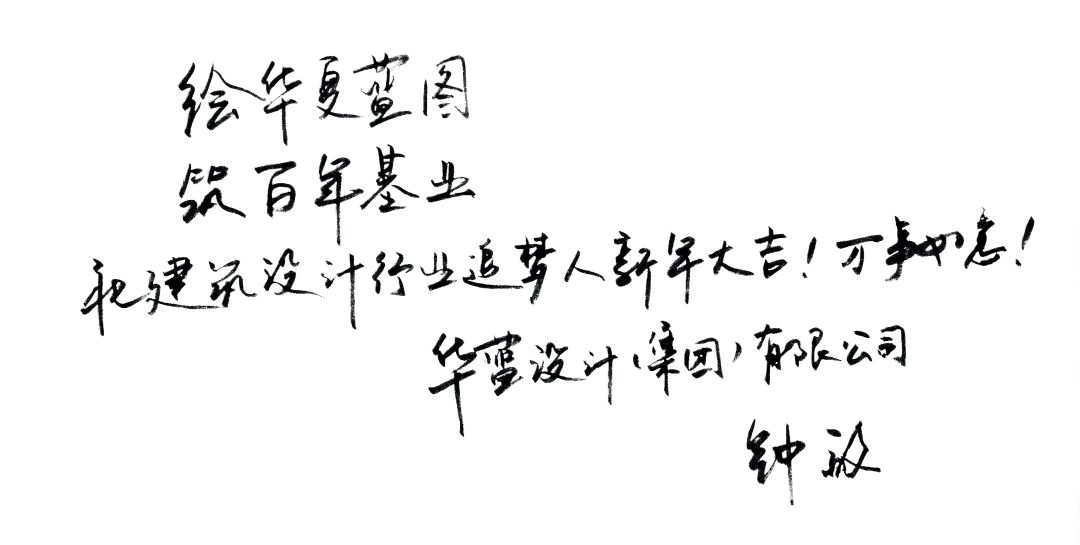 绘华夏蓝图
筑百年基业
祝建筑设计行业追梦人新年大吉！万事如意！
华蓝设计(集团)有限公司
钟毅